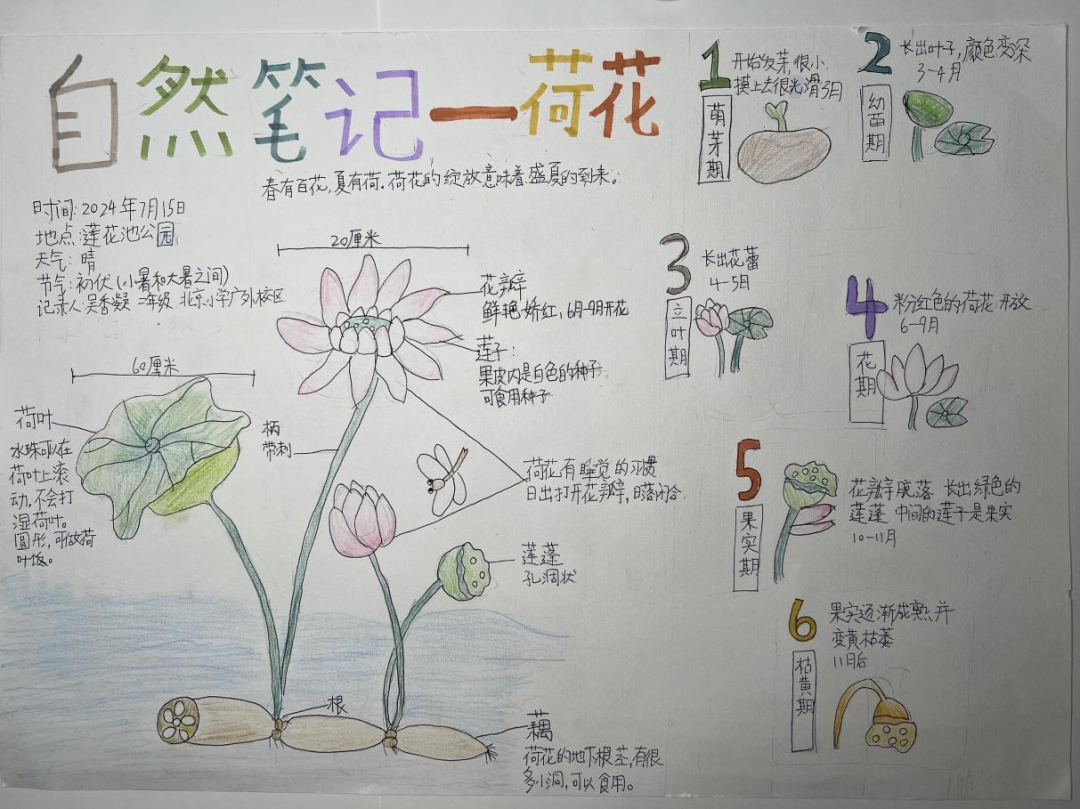 自然笔记—荷花
春有百花,夏有荷.荷花的绽放意味着盛夏的到来。
时间:2024年7月15日
地点:莲花池公园
天气:晴
节气:初伏(小暑和大暑之间)
记录人:吴香凝 二年级 北京小学广外校区
20厘米
花瓣
鲜艳娇红,6月-9月开花
莲子:
果皮内是白色的种子
可食用种子
60厘米
荷叶
水珠可以在
荷叶上滚
动,不会打
湿荷叶。
圆形,可做荷
叶饭。
柄
带刺
荷花有睡觉的习惯
日出打开花瓣,日落闭合.
莲蓬
孔洞状
根
藕
荷花的地下根茎,有很
多小洞,可以食用。
1
开始发芽,很小
摸上去很光滑3月
萌芽期
2
长出叶子,颜色变深
3-4月
幼苗期
3
长出花蕾
4-5月
立叶期
4
粉红色的荷花开放
6-9月
花期
5
花瓣脱落 长出绿色的
莲蓬 中间的莲子是果实
10-11月
果实期
6
果实逐渐成熟并
变黄枯萎
11月后
枯黄期